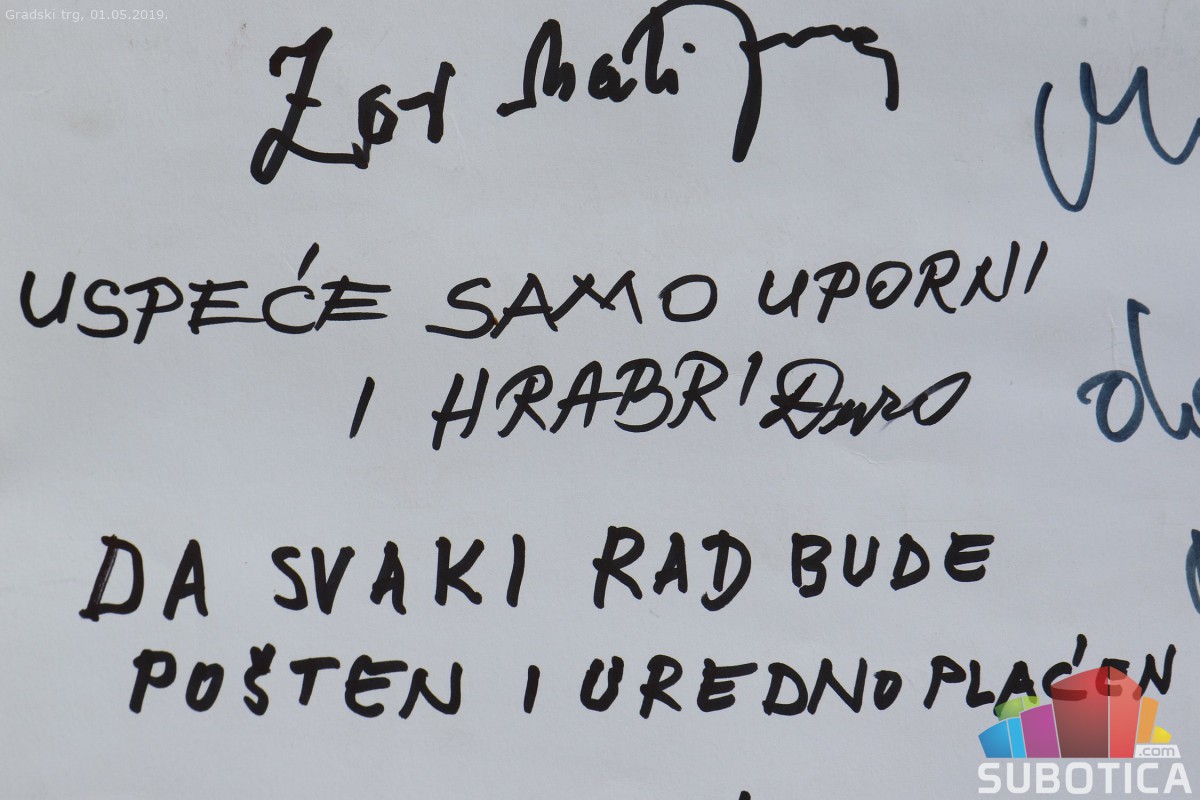 Gradski trg, 01.05.2019.
USPEĆE SAMO UPORNI
I HRABRI
DA SVAKI RAD BUDE
POŠTEN I UREDNO PLAĆEN
.com
SUBOTICA